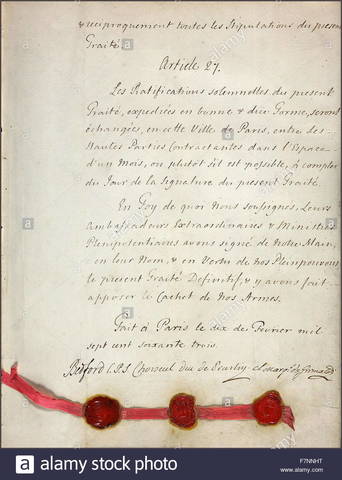 & réciproquement toutes les Stipulations du present
Traité.
Article 27.
Les Ratifications solemnelles du present
Traité, expediées en bonne & düe Forme, seront
échangées, en cette Ville de Paris, entre les
Hautes Parties Contractantes dans l'Espace
d'un Mois, ou plutôt s'il est possible, à compter
du Jour de la Signature du present Traité.
En Foy de quoi Nous soussignés, Leurs
Ambassadeurs Extraordinaires & Ministres
Plenipotentiaires avons signé de notre Main,
en leur Nom, & en Vertu de nos Pleinpouvoirs
le present Traité Definitif, & y avons fait
apposer le Cachet de nos Armes.
Fait à Paris le dix de Fevrier mil
sept cent soixante trois.
Bedford C.P.S. Choiseul duc de Praslin el Marq. de Grimaldi
alamy stock photo
F7NNHT
www.alamy.com